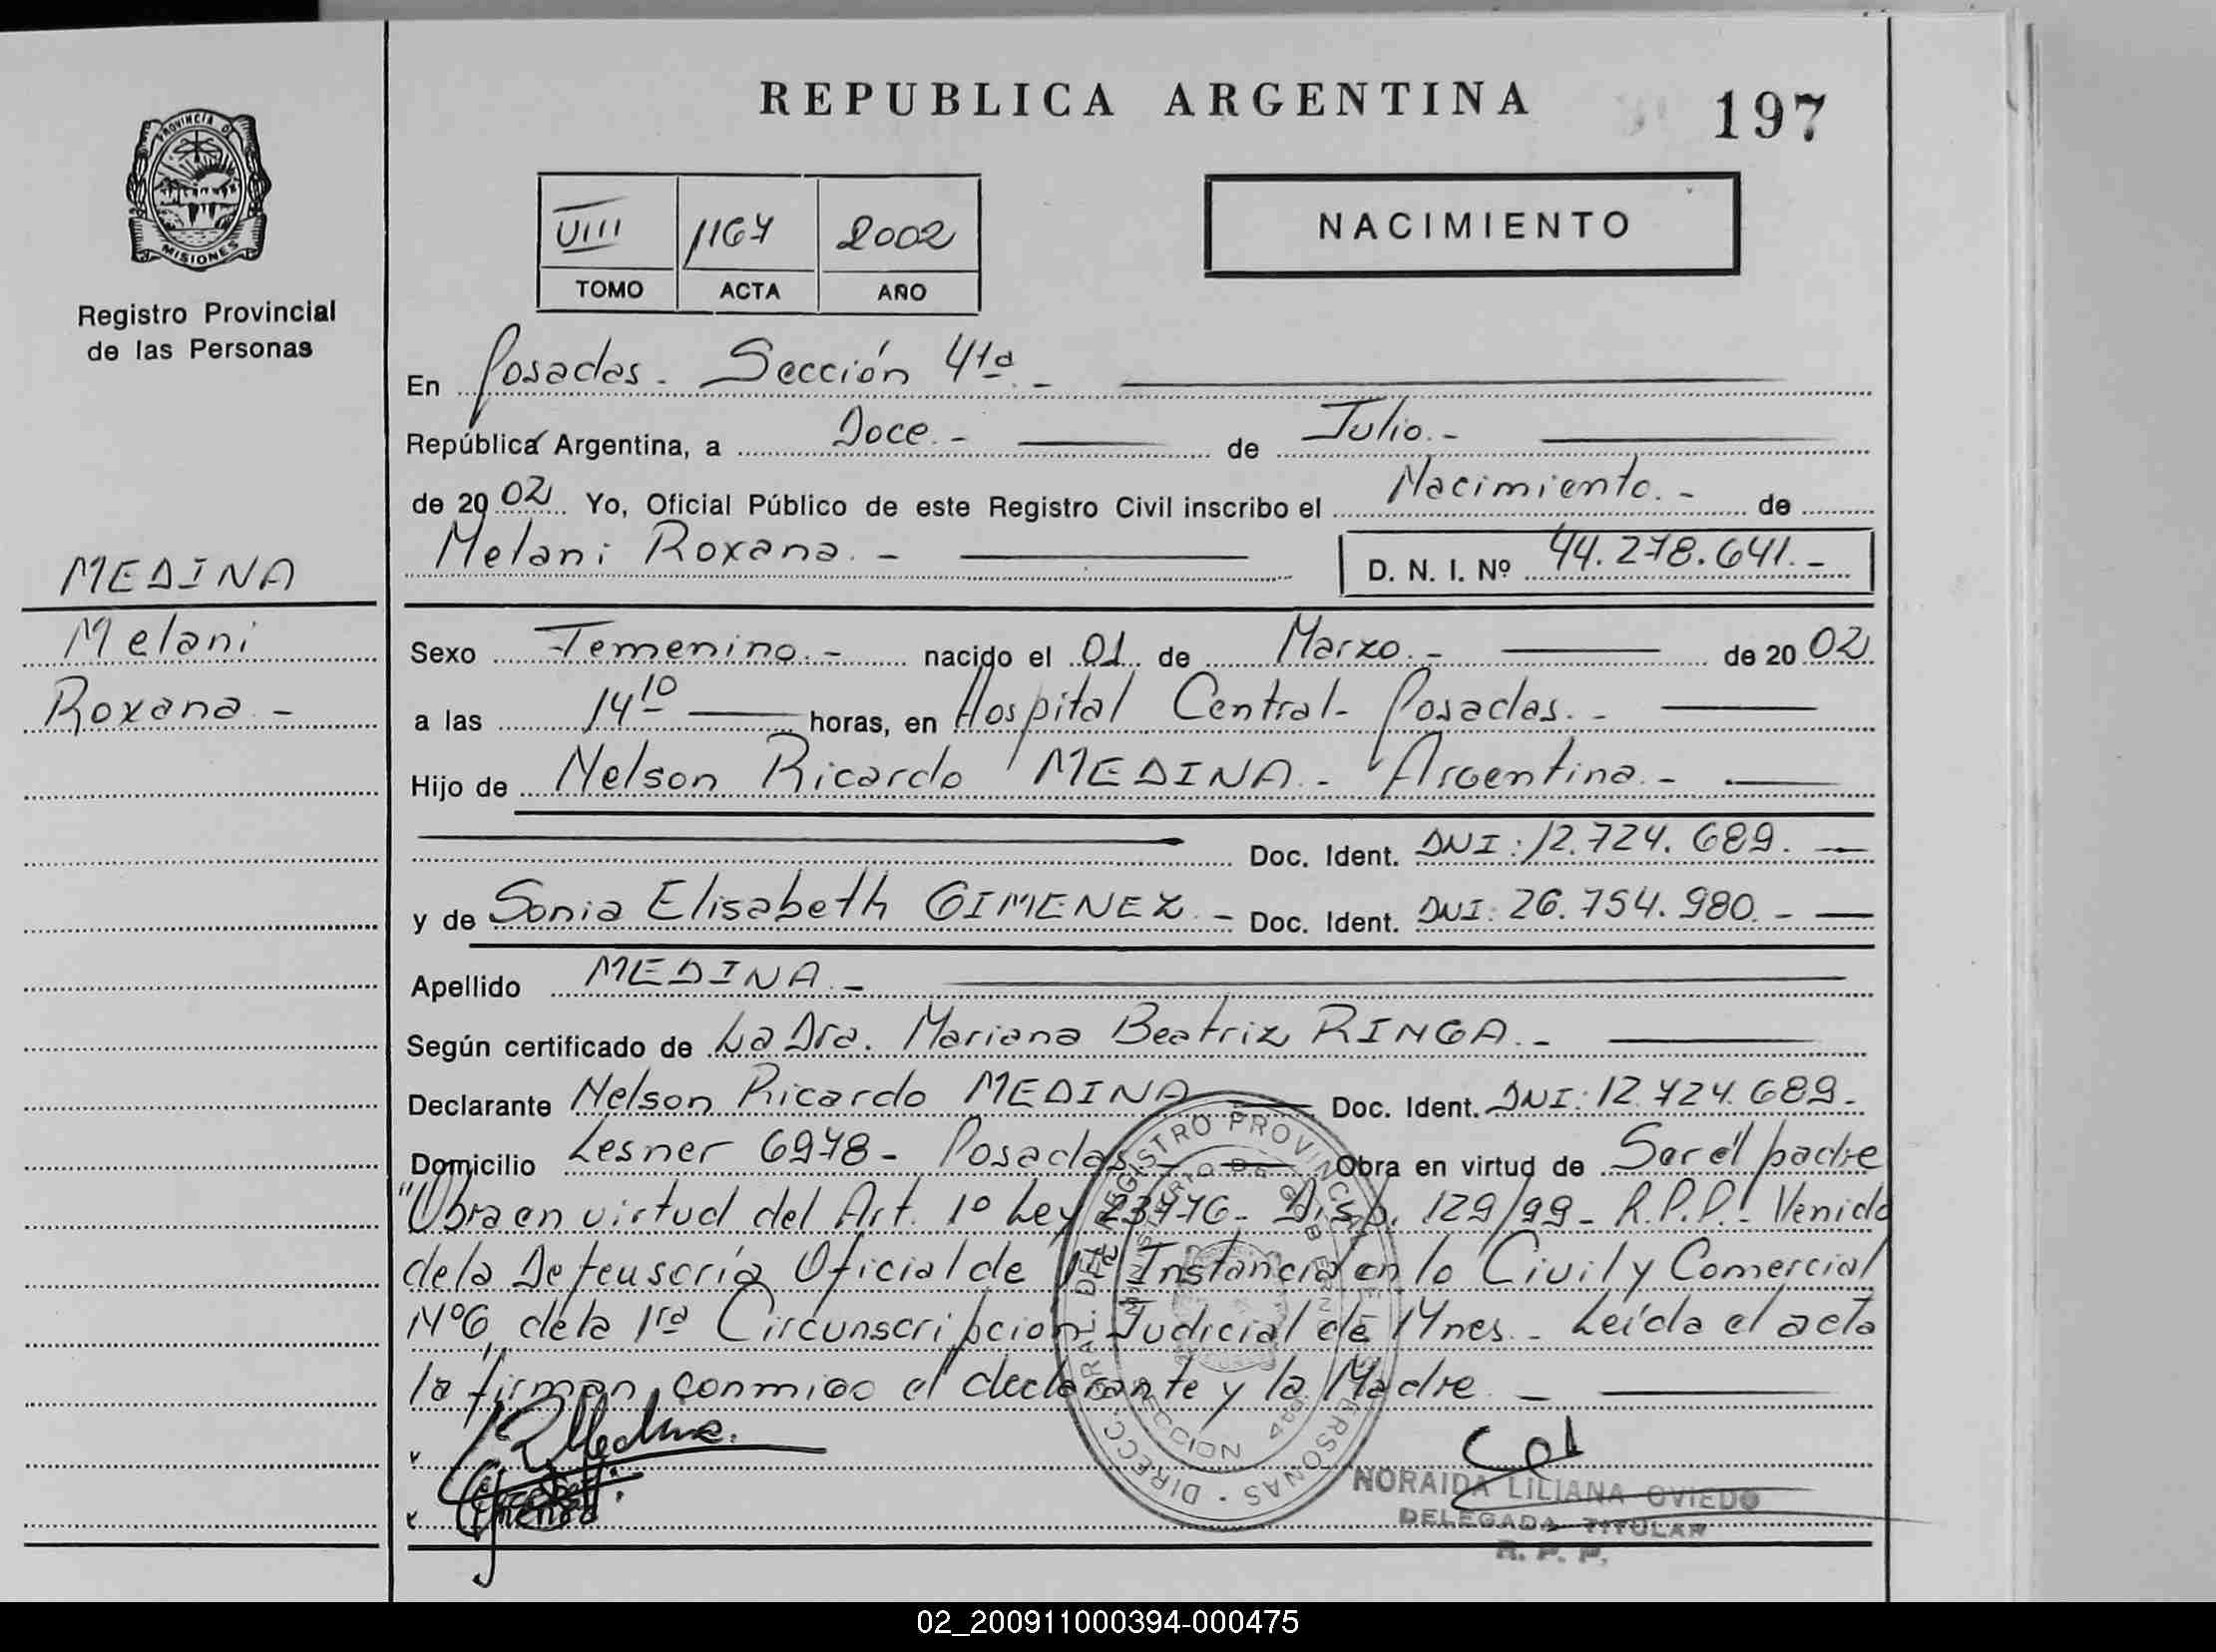 REPUBLICA ARGENTINA
197
PROVINCIA DE
MISIONES
Registro Provincial
de las Personas
VIII 1167 2002
TOMO ACTA AÑO
NACIMIENTO
En Posadas.- Sección 4ta.-
República Argentina, a Doce.- de Julio.-
de 2002 Yo, Oficial Público de este Registro Civil inscribo el Nacimiento.- de
Melani Roxana.- D. N. I. Nº 44.278.641.-
MEDINA
Melani
Roxana.-
Sexo Femenino.- nacido el 01 de Marzo.- de 2002
a las 14 10 horas, en Hospital Central- Posadas.-
Hijo de Nelson Ricardo MEDINA.- Argentina.-
Doc. Ident. DNI: 12.724.689.-
y de Sonia Elisabeth GIMENEZ.- Doc. Ident. DNI: 26.754.980.-
Apellido MEDINA.-
Según certificado de La Dra. Mariana Beatriz RINGA.-
Declarante Nelson Ricardo MEDINA Doc. Ident. DNI: 12.724.689.-
Domicilio Lesner 6978- Posadas Obra en virtud de Ser el padre
"Obra en virtud del Art. 1º Ley 23776- Disp. 129/99- R.P.P.- Venida
de la Defensoría Oficial de 1ra Instancia en lo Civil y Comercial
Nº6, de la 1ra Circunscripción Judicial de Mnes.- Leída el acta
la firman conmigo el declarante y la Madre.-
DIRECC. GRAL. DEL REGISTRO PROVINCIAL DE LAS PERSONAS
MINISTERIO DE GOBIERNO
SECCION 4ta
Medina.
NORAIDA LILIANA OVIEDO
DELEGADA TITULAR
R. P. P.
02_200911000394-000475